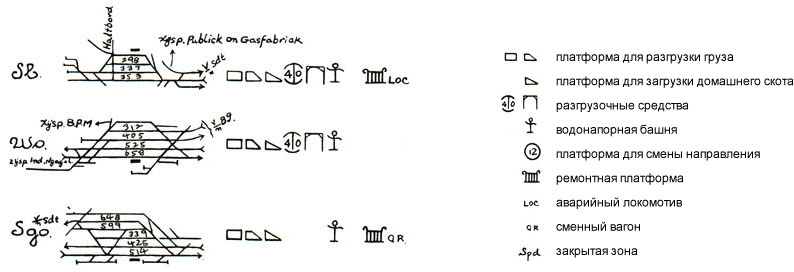 Haltbord
zysp. Publiek on Gasfabriek
298
337
353
Sb.
v. sdt
40
LOC
zysp. B.P.M
v. Bg.
312
405
525
658
Wo.
40
v. sdt
648
599
339
425
514
Sgo.
QR
платформа для разгрузки груза
платформа для загрузки домашнего скота
40 разгрузочные средства
водонапорная башня
12 платформа для смены направления
ремонтная платформа
LOC аварийный локомотив
QR сменный вагон
Spd закрытая зона